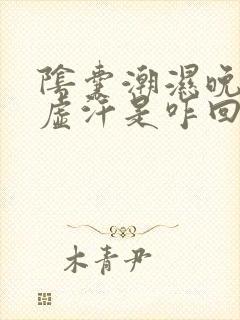 陰囊潮濕晚
虛汗是咋回
木青尹